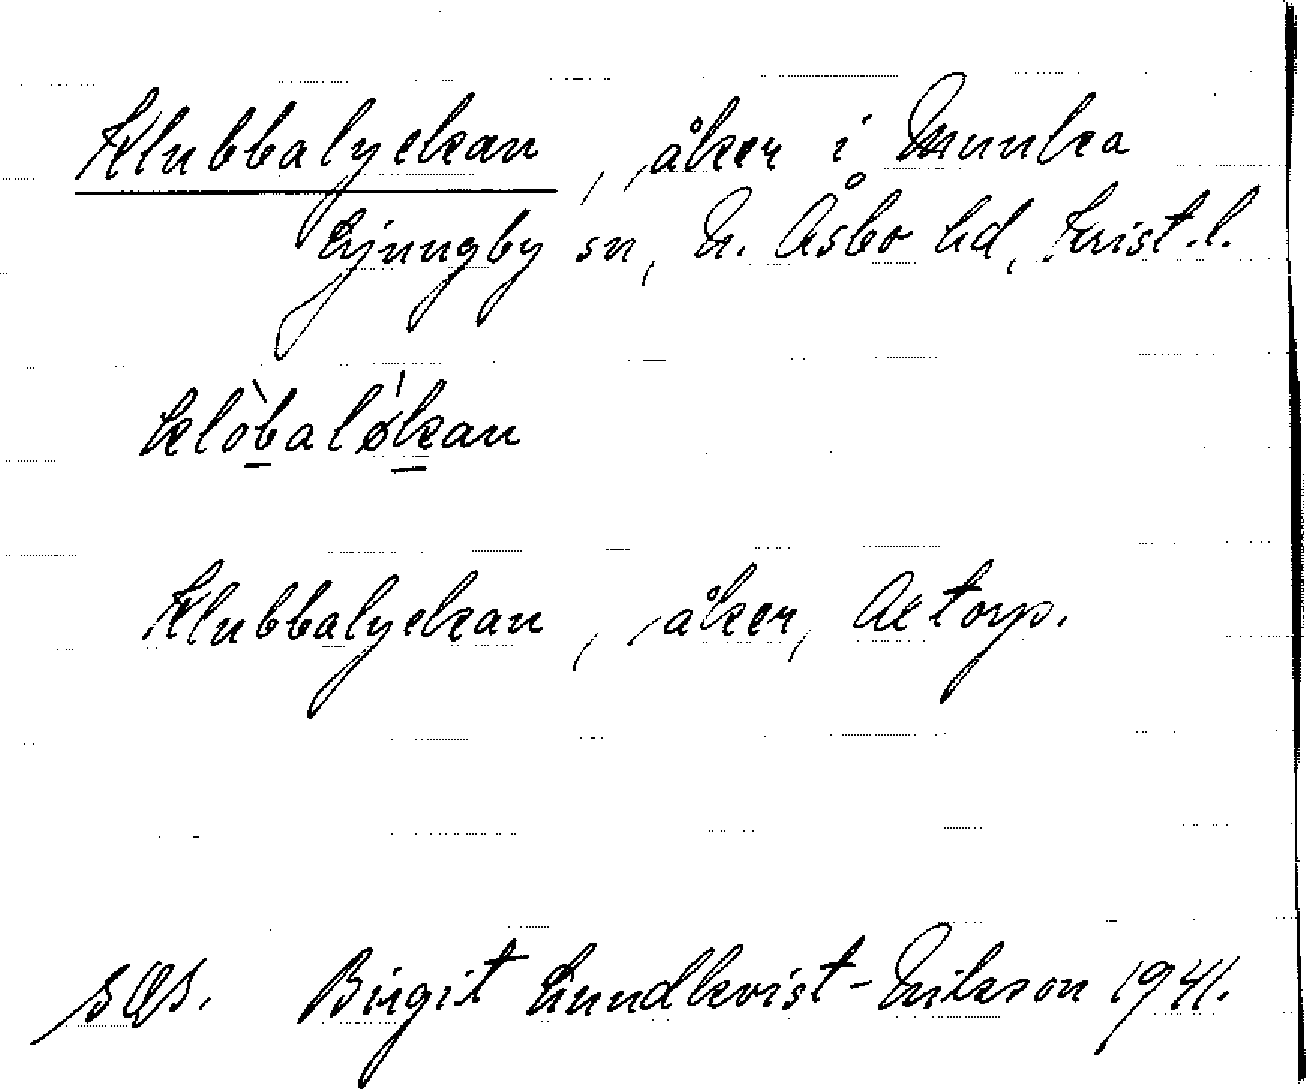 Klubbalyckan, åker i Munka
Ljungby sn, N. Åsbo hd, Krist. l.
klòbaløkan
Klubbalyckan, åker, Axtorp.
Birgit Lundkvist-Nilsson 1941.